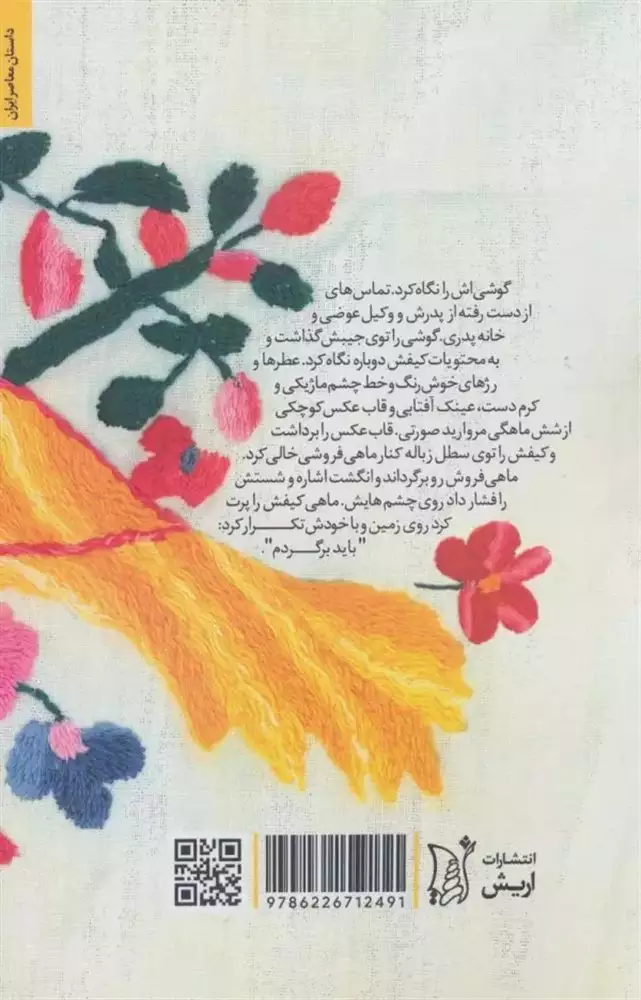 داستان معاصر ایران
گوشی‌اش را نگاه کرد. تماس‌های
از دست رفته از پدرش و وکیل عوضی و
خانه پدری. گوشی را توی جیبش گذاشت و
به محتویات کیفش دوباره نگاه کرد. عطرها و
رژهای خوش‌رنگ و خط چشم ماژیکی و
کرم دست، عینک آفتابی و قاب عکس کوچکی
از شش ماهگی مروارید صورتی. قاب عکس را برداشت
و کیفش را توی سطل زباله کنار ماهی‌فروشی خالی کرد.
ماهی‌فروش رو برگرداند و انگشت اشاره و شستش
را فشار داد روی چشم‌هایش. ماهی کیفش را پرت
کرد روی زمین و با خودش تکرار کرد:
"باید برگردم".
انتشارات
اریش
9786226712491